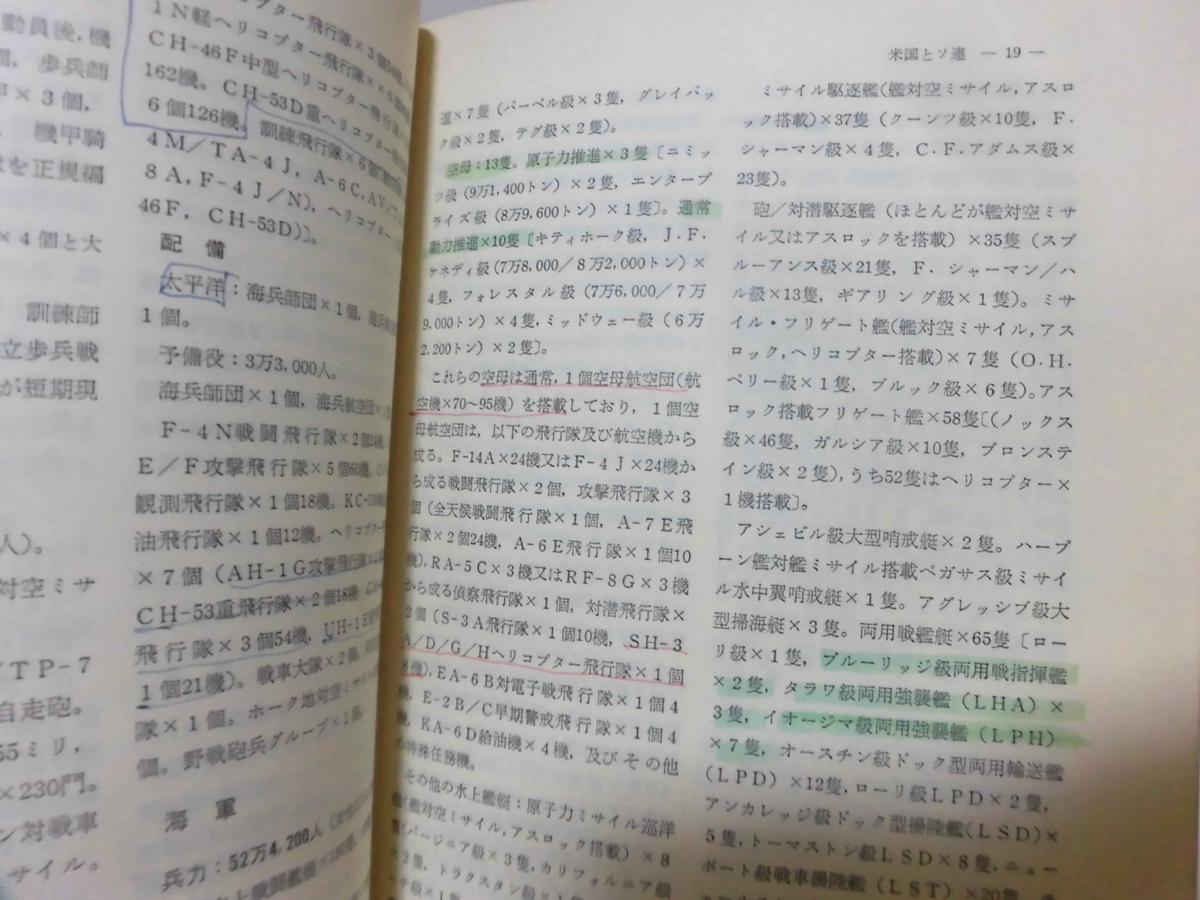 動員後，機
歩兵師
×3個，
機甲騎
を正規編
×4個と大
訓練師
立歩兵戦
が短期現
人）。
対空ミサ
TP-7
自走砲。
55ミリ，
×230門。
ン対戦車
サイル。
コプター飛行隊×3個
1N軽ヘリコプター飛行隊×
CH-46F中型ヘリコプター飛行隊
162機。CH-53D重ヘリコプター
6個126機。訓練飛行隊×6個
4M／TA-4J，A-6C，AV／
8A，F-4J／N），ヘリコプター
46F，CH-53D）〕。
配備
太平洋：海兵師団×1個，
1個。
予備役：3万3,000人。
海兵師団×1個，海兵航空団×1
F-4N戦闘飛行隊×2個24機，
E／F攻撃飛行隊×5個60機，
観測飛行隊×1個18機。KC-130
油飛行隊×1個12機。ヘリコプター
×7個（AH-1G攻撃飛行隊×
CH-53重飛行隊×2個18機，
飛行隊×3個54機，UH-1E
1個21機）。戦車大隊×2個，
隊×1個。ホーク地対空ミサイル
個。野戦砲兵グループ×1個。
海軍
兵力：52万4,200人
米国とソ連 — 19 —
進×7隻（バーベル級×3隻，グレイバッ
ク級×2隻，テグ級×2隻）。
空母：13隻。原子力推進×3隻〔ニミッ
ツ級（9万1,400トン）×2隻，エンタープ
ライズ級（8万9,600トン）×1隻〕。通常
動力推進×10隻〔キティホーク級，J．F．
ケネディ級（7万8,000／8万2,000トン）×
4隻，フォレスタル級（7万6,000／7万
9,000トン）×4隻，ミッドウェー級（6万
2,200トン）×2隻〕。
これらの空母は通常，1個空母航空団（航
空機×70～95機）を搭載しており，1個空
母航空団は，以下の飛行隊及び航空機から
成る。F-14A×24機又はF-4J×24機か
ら成る戦闘飛行隊×2個，攻撃飛行隊×3
個（全天候戦闘飛行隊×1個，A-7E飛
行隊×2個24機，A-6E飛行隊×1個10
機），RA-5C×3機又はRF-8G×3機
から成る偵察飛行隊×1個，対潜飛行隊×
2個（S-3A飛行隊×1個10機，SH-3
A／D／G／Hヘリコプター飛行隊×1個
8機），EA-6B対電子戦飛行隊×1個4
機，E-2B／C早期警戒飛行隊×1個4
機，KA-6D給油機×4機，及びその他
の特殊任務機。
その他の水上艦艇：原子力ミサイル巡洋
艦（艦対空ミサイル，アスロック搭載）×8
（バージニア級×3隻，カリフォルニア級
×2隻，トラクスタン級×1
ミサイル駆逐艦（艦対空ミサイル，アスロ
ック搭載）×37隻（クーンツ級×10隻，F．
シャーマン級×4隻，C．F．アダムス級×
23隻）。
砲／対潜駆逐艦（ほとんどが艦対空ミサ
イル又はアスロックを搭載）×35隻（スプ
ルーアンス級×21隻，F．シャーマン／ハ
ル級×13隻，ギアリング級×1隻）。ミサ
イル・フリゲート艦（艦対空ミサイル，アス
ロック，ヘリコプター搭載）×7隻（O．H．
ペリー級×1隻，ブルック級×6隻）。アス
ロック搭載フリゲート艦×58隻〔（ノックス
級×46隻，ガルシア級×10隻，ブロンステ
イン級×2隻），うち52隻はヘリコプター×
1機搭載〕。
アシェビル級大型哨戒艇×2隻。ハープ
ーン艦対艦ミサイル搭載ペガサス級ミサイ
ル水中翼哨戒艇×1隻。アグレッシブ級大
型掃海艇×3隻。両用戦艦艇×65隻〔ロー
リ級×1隻，ブルーリッジ級両用戦指揮艦
×2隻，タラワ級両用強襲艦（LHA）×
3隻，イオージマ級両用強襲艦（LPH）
×7隻，オースチン級ドック型両用輸送艦
（LPD）×12隻，ローリ級LPD×2隻，
アンカレッジ級ドック型揚陸艦（LSD）×
5隻，トーマストン級LSD×8隻，ニュー
ポート級戦車揚陸艦（LST）×20隻，